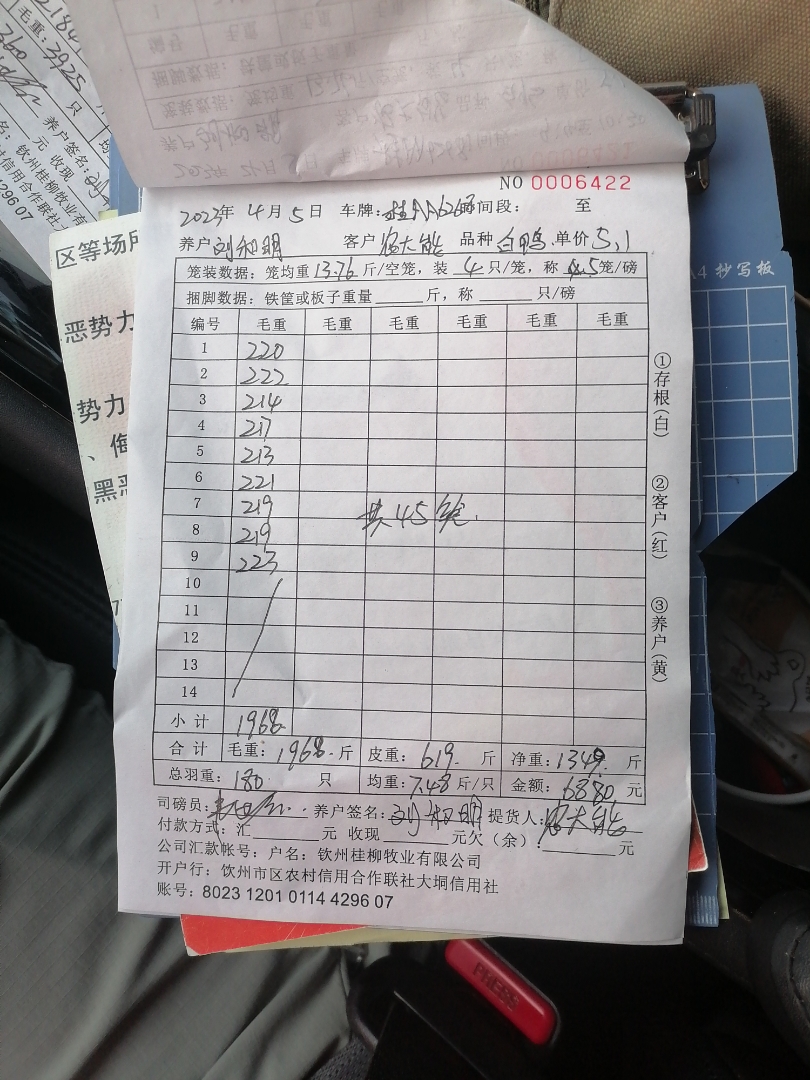 毛重：3925
NO 0006422
2023年 4月 5日 车牌： 时间段： 至
养户 刘和明 客户 农大能 品种 白鸭 单价 5.1
笼装数据：笼均重 13.76 斤/空笼，装 4 只/笼，称 5 笼/磅
捆脚数据：铁筐或板子重量 斤，称 只/磅
编号 毛重 毛重 毛重 毛重 毛重 毛重
1 220
2 222
3 214
4 217
5 213
6 221
7 219
共45笼
8 219
9 223
10
11
12
13
14
小计 1968
合计 毛重：1968 斤 皮重：619 斤 净重：1349 斤
总羽重：180 只 均重：7.48 斤/只 金额：6880 元
司磅员： 养户签名：刘和明 提货人：农大能
付款方式：汇 元 收现 元欠（余）： 元
公司汇款帐号：户名：钦州桂柳牧业有限公司
开户行：钦州市区农村信用合作联社大垌信用社
账号：8023 1201 0114 4296 07
①存根（白）
②客户（红）
③养户（黄）
区等场所
恶势力
势力
黑恶
A4 抄写板
PRESS